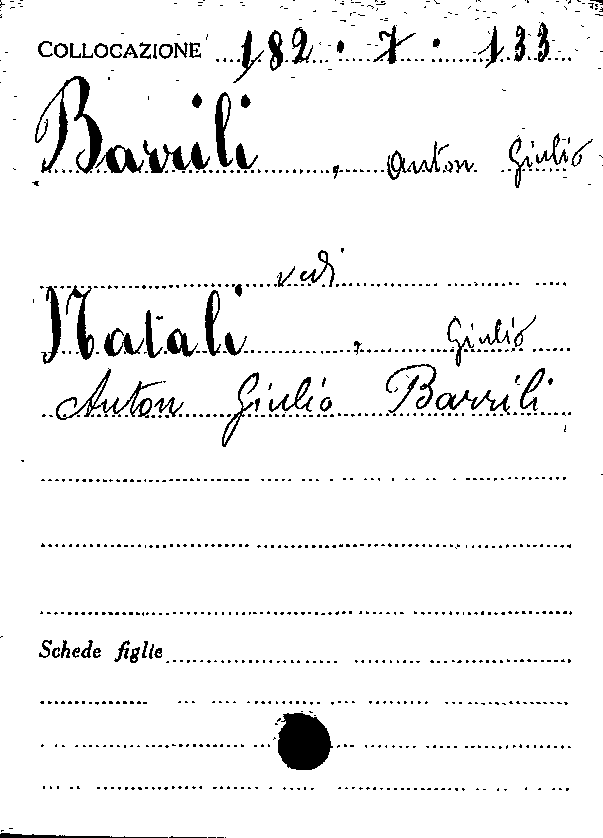 COLLOCAZIONE 182 . 7 . 133
Barrili , Anton Giulio
vedi
Natali , Giulio
Anton Giulio Barrili
Schede figlie